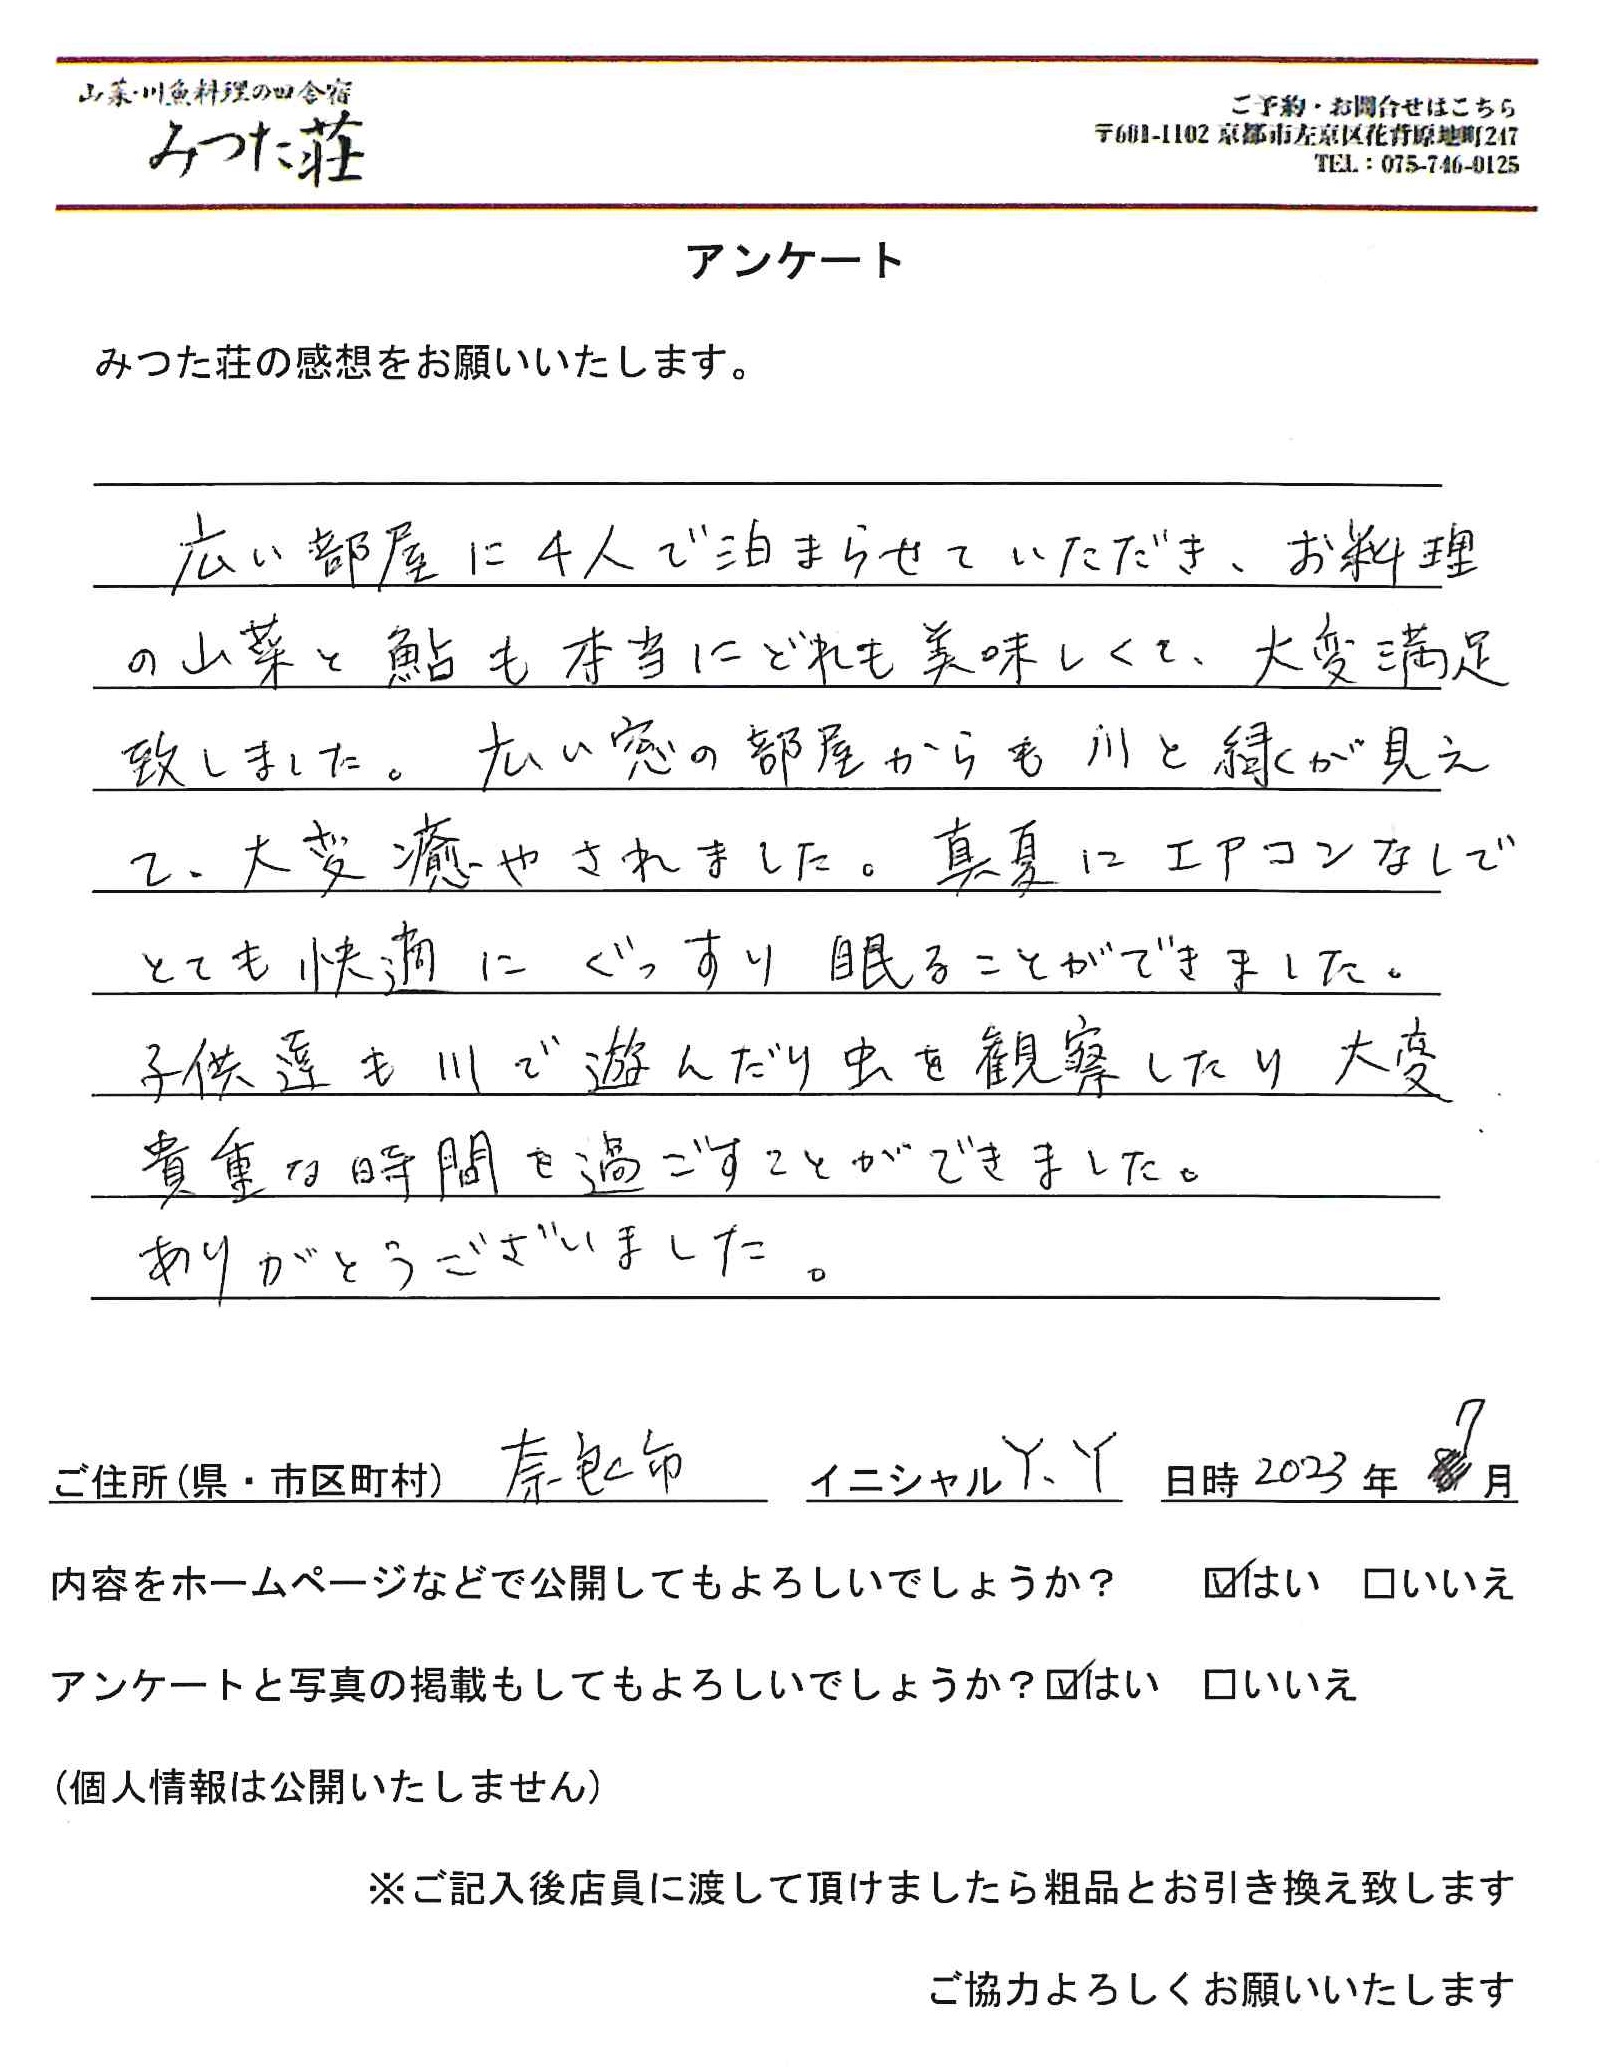 山菜・川魚料理の田舎宿
みつた荘
ご予約・お問合せはこちら
〒601-1102 京都市左京区花背原地町247
TEL：075-746-0125
アンケート
みつた荘の感想をお願いいたします。
広い部屋に4人で泊まらせていただき、お料理
の山菜と鮎も本当にどれも美味しくて、大変満足
致しました。広い窓の部屋からも川と緑が見え
て、大変癒やされました。真夏にエアコンなしで
とても快適にぐっすり眠ることができました。
子供達も川で遊んだり虫を観察したり大変
貴重な時間を過ごすことができました。
ありがとうございました。
ご住所(県・市区町村) 奈良市 イニシャル Y.Y 日時 2023 年 7 月
内容をホームページなどで公開してもよろしいでしょうか？ ☑はい □いいえ
アンケートと写真の掲載もしてもよろしいでしょうか？☑はい □いいえ
(個人情報は公開いたしません)
※ご記入後店員に渡して頂けましたら粗品とお引き換え致します
ご協力よろしくお願いいたします